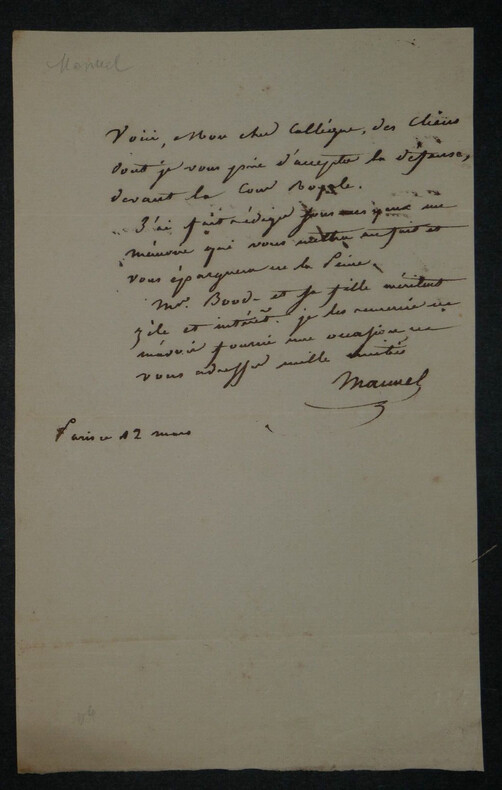 Manuel
Voici, Mon cher Collègue, des Cliens
dont je vous prie d'accepter la défense,
devant la Cour Royale.
J'ai fait rédiger sous mes yeux un
mémoire qui vous mettra au fait et
vous épargnera de la Peine.
Mr. Bood et sa fille méritent
zèle et intérêt. je les remercie de
m'avoir fourni une occasion de
vous adresser mille amitiés
Manuel
Paris ce 12 mars